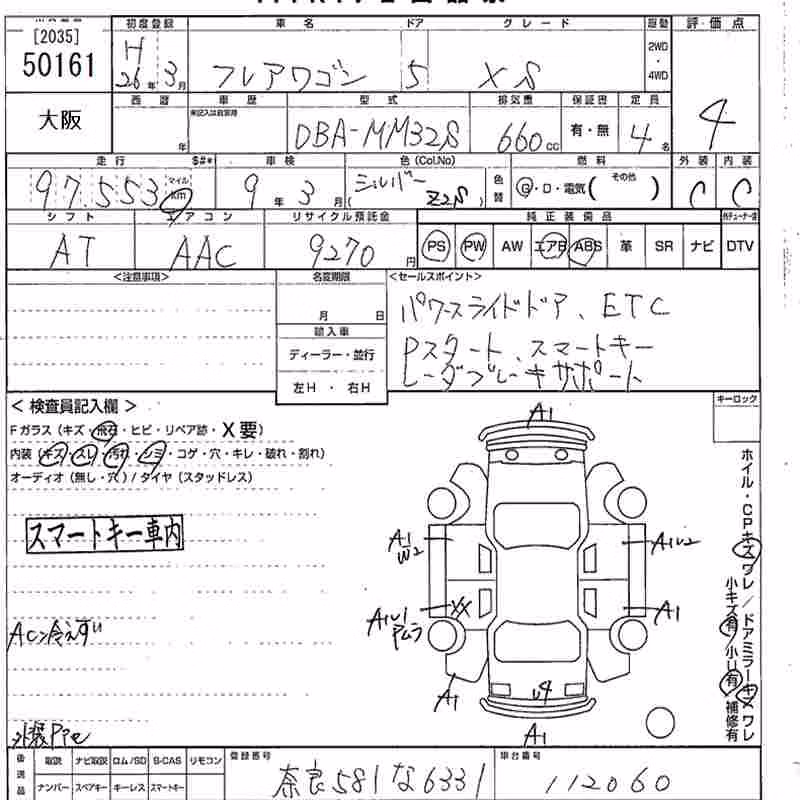 [2035]
50161
大阪
初度登録 車名 ドア グレード 駆動 評価点
H 26年 3月 フレアワゴン 5 XS 2WD・4WD 4
西暦 年 車歴 未記入は自家用 型式 排気量 保証書 定員
DBA-MM32S 660cc 有・無 4名
走行 $#* 車検 色(Col.No) 燃料 外装 内装
97,553 マイル km 9年 3月 シルバー (Z2S) 色替 G・D・電気( その他 ) C C
シフト エアコン リサイクル預託金 純正装備品
AT AAC 9270円 PS PW AW エアB ABS 革 SR ナビ DTV
<注意事項> 名変期限 <セールスポイント>
月 日
輸入車
ディーラー・並行
左H・右H
パワースライドドア、ETC
Pスタート、スマートキー
レーダブレーキサポート
キーロック
< 検査員記入欄 >
Fガラス(キズ・飛石・ヒビ・リペア跡・X要)
内装(キズ・スレ・汚れ・シミ・コゲ・穴・キレ・破れ・割れ)
オーディオ(無し・穴)/タイヤ(スタッドレス)
スマートキー車内
A1
A1
W2
A1U2
A1U1
XX
A1
A1
U4
A1
ホイル・CPキズワレ/ドアミラーキズワレ
小キズ有/小U有/補修有
後送品 取説 ナビ取説 ロム/SD B-CAS リモコン 登録番号 車台番号
ナンバー スペアキー キーレス スマートキー 奈良581な6331 112060